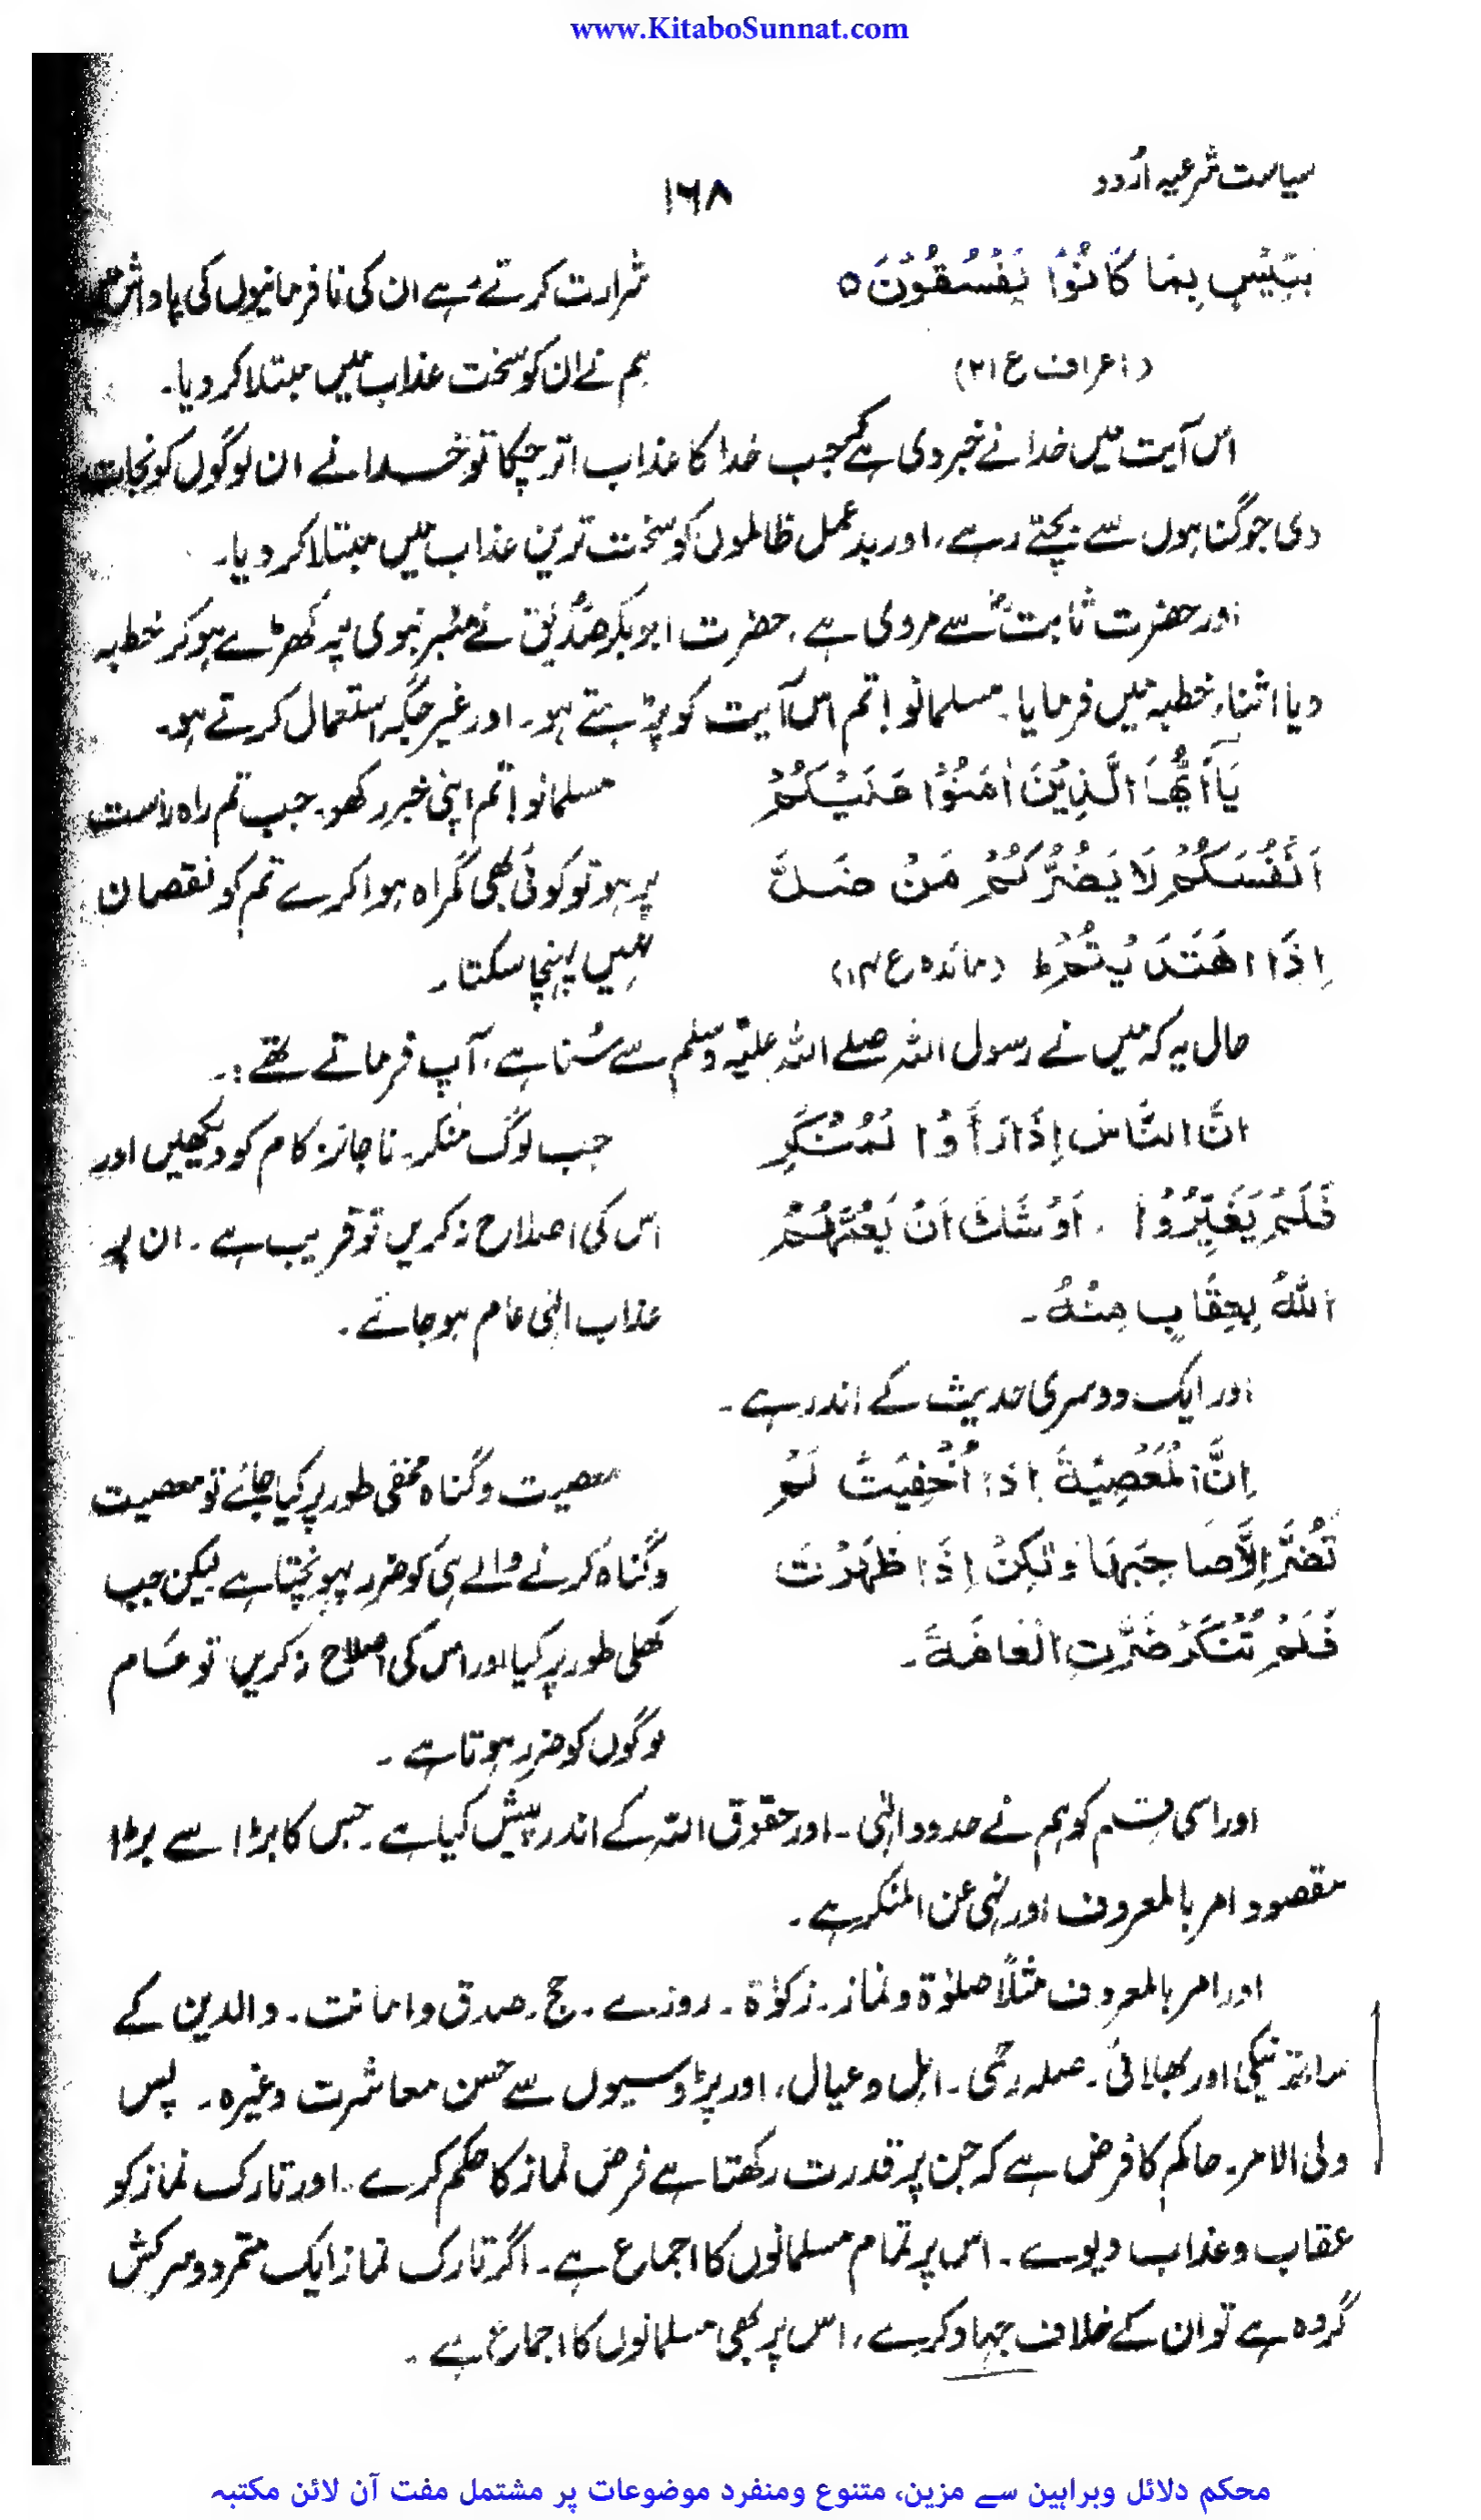 www.KitaboSunnat.com
سیاست شرعیہ اُردو
۱۶۸
بَئِیْسٍ بِمَا کَانُوْا یَفْسُقُوْنَ o
شرارت کرتے رہے ان کی نافرمانیوں کی پاداش میں
(اعراف ع ۲۱)
ہم نے ان کو سخت عذاب میں مبتلا کر دیا۔
اس آیت میں خدا نے خبر دی ہے کہ جب خدا کا عذاب اتر چکا تو خدا نے ان لوگوں کو نجات
دی جو گناہوں سے بچتے رہے، اور بدعمل ظالموں کو سخت ترین عذاب میں مبتلا کر دیا۔
اور حضرت ثابتؓ سے مروی ہے، حضرت ابوبکر صدیقؓ نے منبر نبوی پہ کھڑے ہو کر خطبہ
دیا اثناء خطبہ میں فرمایا۔ مسلمانو! تم اس آیت کو پڑہتے ہو۔ اور غیر جگہ استعمال کرتے ہو۔
یَآاَیُّہَا الَّذِیْنَ اٰمَنُوْا عَلَیْکُمْ
مسلمانو! تم اپنی خبر رکھو۔ جب تم راہ راست
اَنْفُسَکُمْ لَا یَضُرُّکُمْ مَنْ ضَلَّ
پر ہو تو کوئی بھی گمراہ ہوا کرے تم کو نقصان
اِذَا اھْتَدَیْتُمْ ط (مائدہ ع ۱۴)
نہیں پہنچا سکتا۔
حال یہ کہ میں نے رسول اللہ صلے اللہ علیہ وسلم سے سُنا ہے، آپ فرماتے تھے:۔
انَّ النَّاسَ اِذَا رَأَوُا لْمُنْکَرَ
جب لوگ مُنکر۔ ناجائز کام کو دیکھیں اور
فَلَمْ یَغَیِّرُوْا ۔ اَوْشَکَ اَنْ یَعُمَّہُمْ
اس کی اصلاح نہ کریں تو قریب ہے۔ ان پر
اللّٰہُ بِعِقَابٍ مِنْہُ۔
عذاب الٰہی عام ہو جائے۔
اور ایک دوسری حدیث کے اندر ہے۔
اِنَّ الْمَعْصِیَۃَ اِذَا اُخْفِیَتْ لَمْ
معصیت و گناہ مخفی طور پر کیا جائے تو معصیت
تَضُرَّ اِلَّا صَاحِبَہَا وَلٰکِنْ اِذَا ظَہَرَتْ
و گناہ کرنے والے ہی کو ضرر پہونچتا ہے لیکن جب
فَلَمْ تُنْکَرْ ضَرَّتِ الْعَامَّۃَ۔
کھلی طور پر کیا اور اس کی اصلاح نہ کریں تو عام
لوگوں کو ضرر ہوتا ہے۔
اور اسی قسم کو ہم نے حدود الٰہی۔ اور حقوق اللہ کے اندر پیش کیا ہے۔ جس کا بڑا سے بڑا
مقصود امر بالمعروف اور نہی عن المنکر ہے۔
اور امر بالمعروف مثلاً صلوٰۃ و نماز۔ زکوٰۃ۔ روزے۔ حج۔ صدق و امانت۔ والدین کے
ساتھ نیکی اور بھلائی۔ صلہ رحمی۔ اہل و عیال، اور پڑوسیوں سے حسن معاشرت وغیرہ۔ پس
ولی الامر۔ حاکم کا فرض ہے کہ جن پر قدرت رکھتا ہے فرض نماز کا حکم کرے۔ اور تارک نماز کو
عقاب و عذاب دیوے۔ اس پر تمام مسلمانوں کا اجماع ہے۔ اگر تارک نماز ایک متمرد و سرکش
گروہ ہے تو ان کے خلاف جہاد کرے، اس پر بھی مسلمانوں کا اجماع ہے۔
محکم دلائل وبراہین سے مزین، متنوع ومنفرد موضوعات پر مشتمل مفت آن لائن مکتبہ